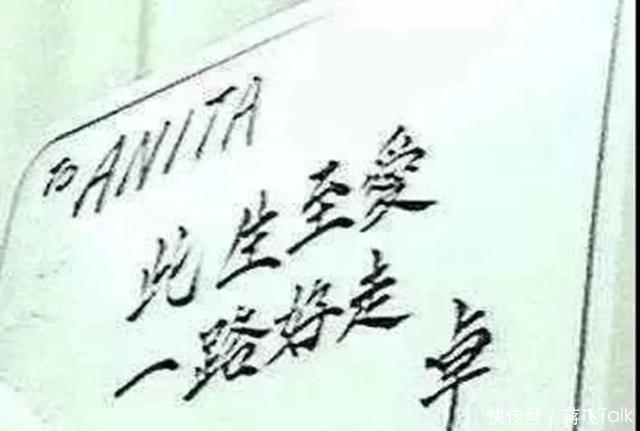 TO ANITA
此生至愛
一路好走
卓
快传号 / 蒋飞Talk